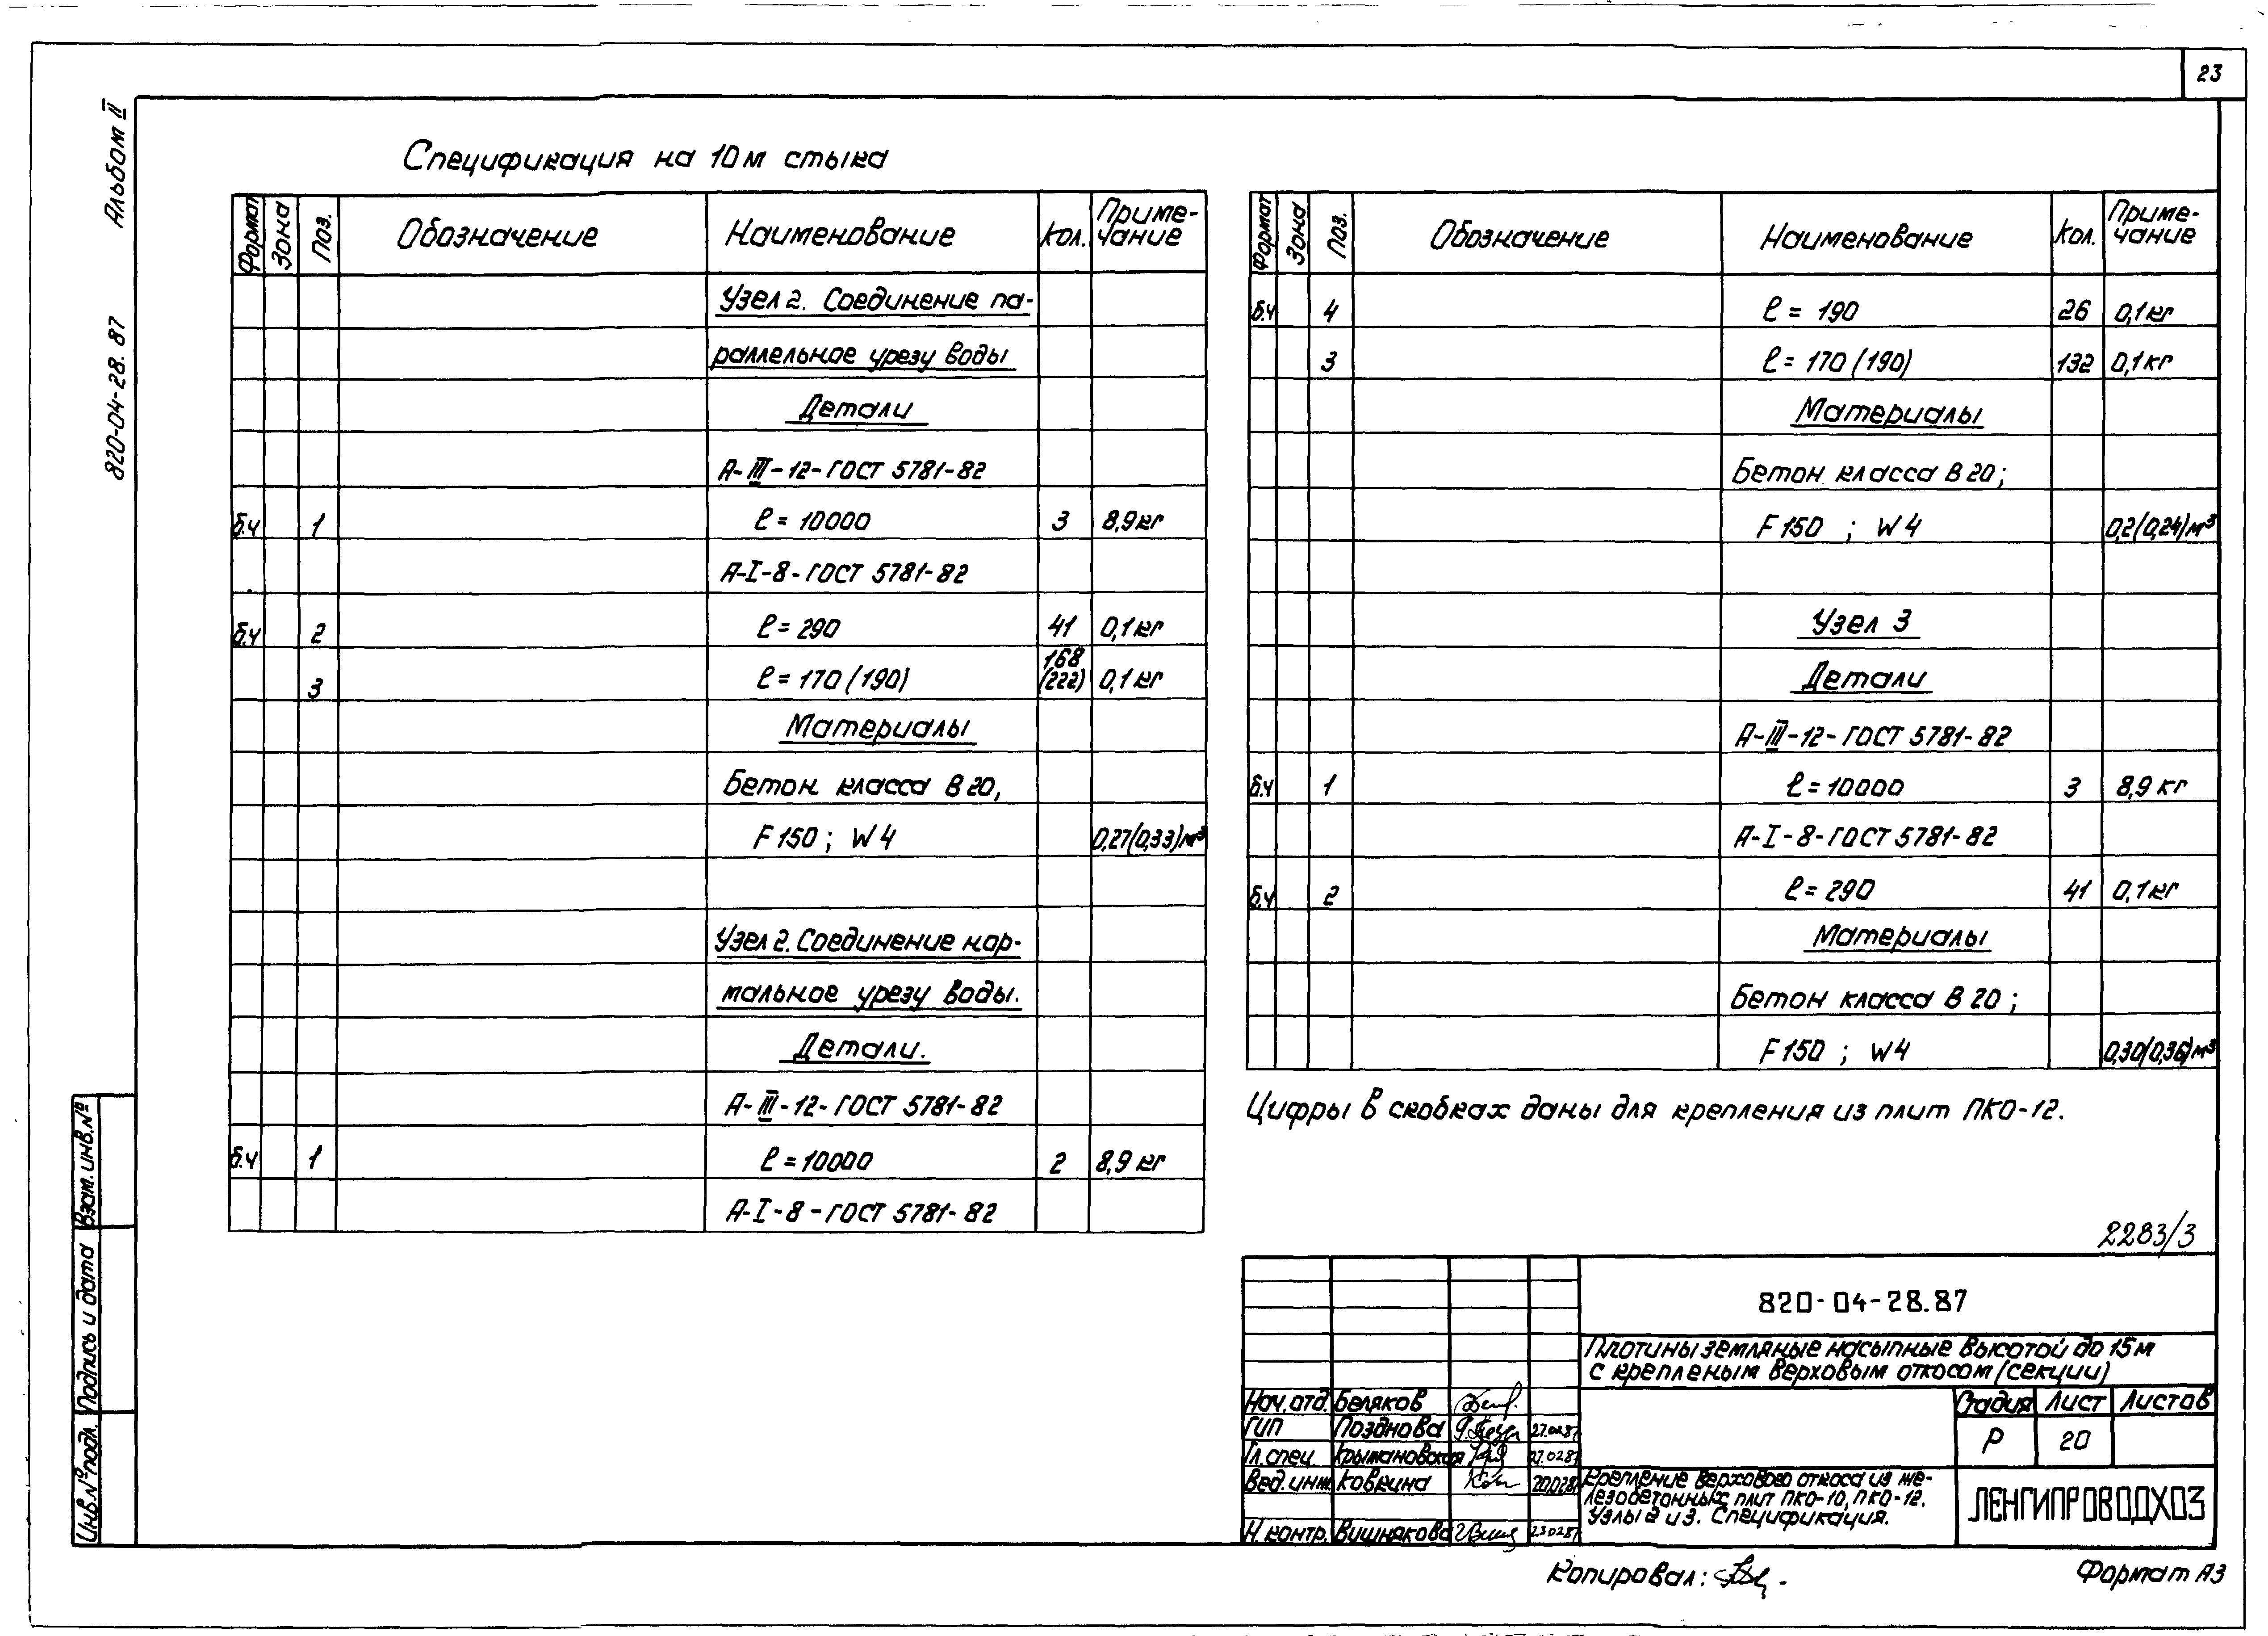 23
Альбом II
820-04-28.87
Спецификация на 10м стыка
Формат Зона Поз. Обозначение Наименование Кол. Приме-
чание
Узел 2. Соединение па-
раллельное урезу воды
Детали
А-III-12-ГОСТ 5781-82
б.ч 1 ℓ=10000 3 8,9кг
А-I-8-ГОСТ 5781-82
б.ч 2 ℓ=290 41 0,1кг
3 ℓ=170(190) 168
(222) 0,1кг
Материалы
Бетон класса В20,
F150; W4 0,27(0,33)м³
Узел 2. Соединение нор-
мальное урезу воды.
Детали.
А-III-12-ГОСТ 5781-82
б.ч 1 ℓ=10000 2 8,9кг
А-I-8-ГОСТ 5781-82
Формат Зона Поз. Обозначение Наименование Кол. Приме-
чание
б.ч 4 ℓ=190 26 0,1кг
3 ℓ=170(190) 132 0,1кг
Материалы
Бетон класса В20;
F150; W4 0,2(0,24)м³
Узел 3
Детали
А-III-12-ГОСТ 5781-82
б.ч 1 ℓ=10000 3 8,9кг
А-I-8-ГОСТ 5781-82
б.ч 2 ℓ=290 41 0,1кг
Материалы
Бетон класса В20;
F150; W4 0,30(0,36)м³
Цифры в скобках даны для крепления из плит ПКО-12.
2283/3
820-04-28.87
Плотины земляные насыпные высотой до 15м
с крепленым верховым откосом (секции)
Нач.отд. Беляков
ГИП Позднова 27.0287
Гл.спец. Крымановская 27.0287
Вед.инж. Ковкина 20.0287
Н.контр. Вишнякова 23.0287
Стадия Лист Листов
Р 20
Крепление верхового откоса из же-
лезобетонных плит ПКО-10, ПКО-12.
Узлы 2 и 3. Спецификация.
ЛЕНГИПРОВОДХОЗ
Копировал:
Формат А3
Взам.инв.№
Подпись и дата
Инв.№подл.